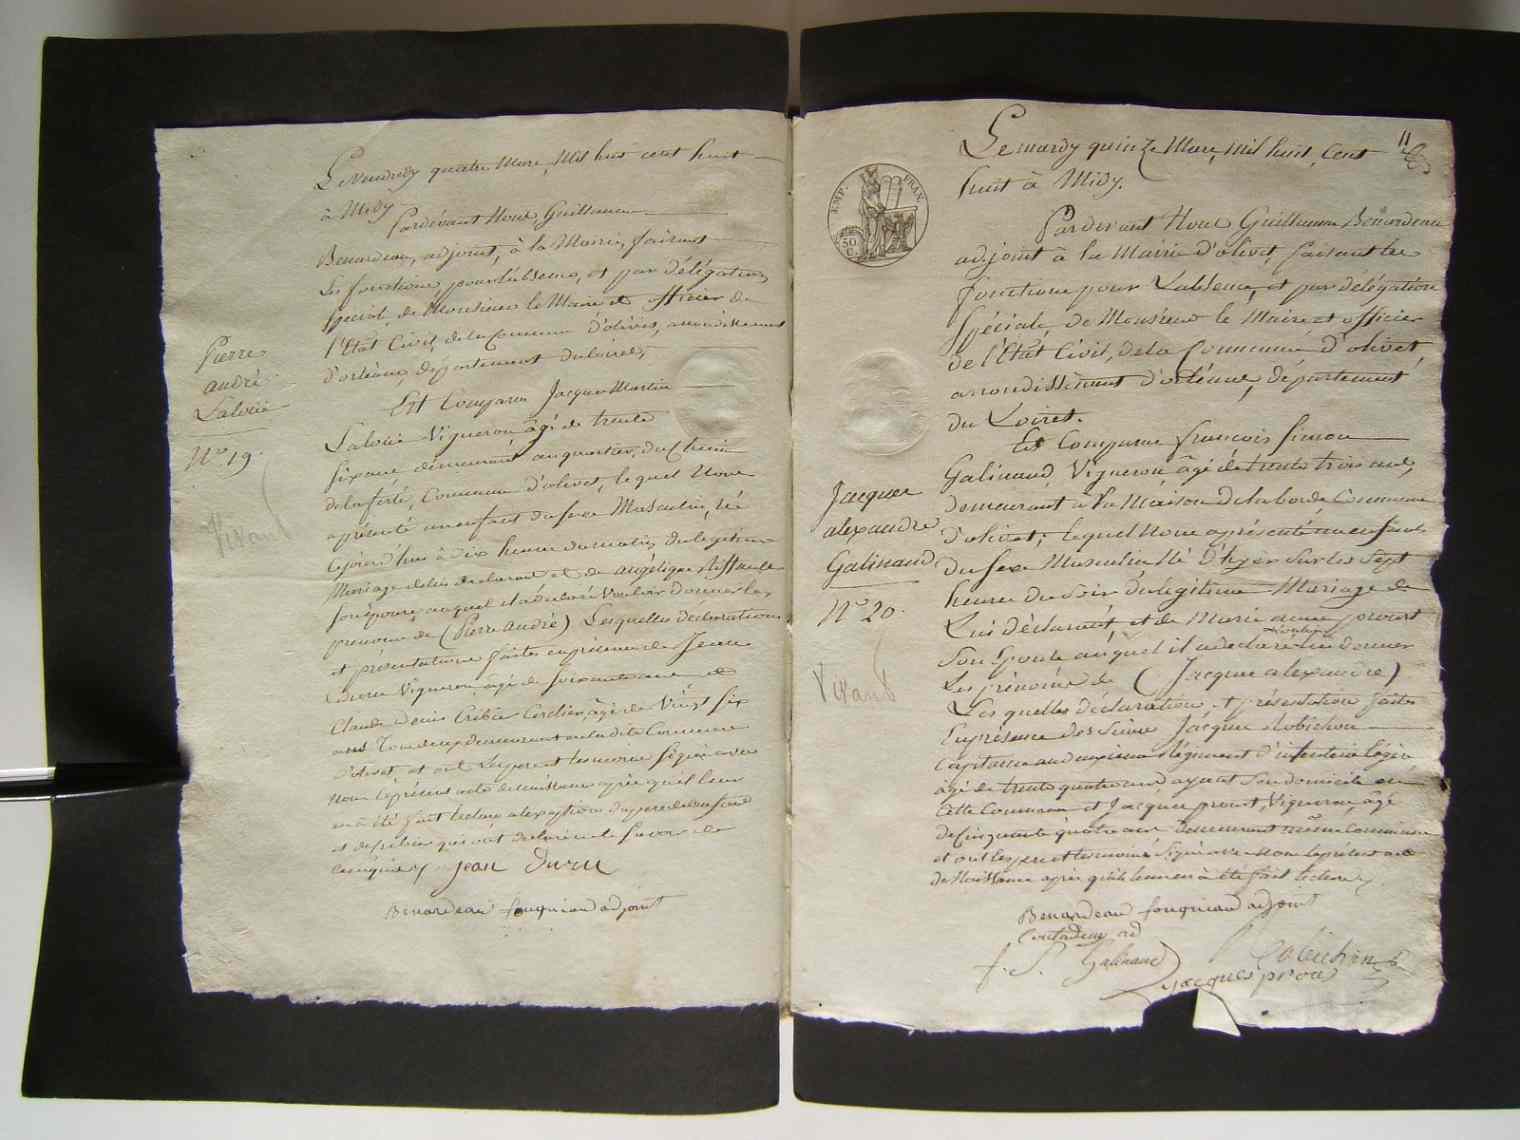 Le Vendredy quatre Mars, Mil huit cent huit
à Midy
Pardevant Nous, Guillaume
Benardeau, adjoint, à la Mairie, faisant
les fonctions, pour l'absence, et par délégation
spécial, de Monsieur le Maire et officier de
l'Etat Civil, de la Commune d'olivet, arrondissement
d'orléans, département du loiret,
Est Comparu Jacque Martin
Vigneron âgé de trente
six ans, demeurant au quartier, du Chemin
de la ferté, Commune d'olivet, lequel Nous
a présenté un enfant du sexe Masculin, Né
cejourd'hui à dix heure du matin, du légitime
Mariage de lui déclarant et de angélique
son épouse, auquel il a déclaré Vouloir donner les
prenoms de (Pierre andré) Lesquelles déclarations
et présentations faites en présence de Jean
Vigneron, âgé de soixante ans et
Claude Denis âgé de Vingt six
ans Tous deux demeurant en la dite Commune
d'olivet, et ont le père et temoins signé avec
Nous le présent acte de naissance après qu'il leur
en a été fait lecture à l'exception du père de l'enfant
et de qui ont déclaré ne le Savoir de
ce enquis jean Duru
Benardeau fougniaud adjoint
Pierre
andré
N.o 19.
Vivant
11
Le mardy quinze Mars, mil huit, Cent
huit à Midy.
EMP. FRAN.
50
C.
Pardevant Nous Guillaume Benardeau
adjoint à la Mairie d'olivet, faisant les
fonctions pour L'absence, et par délégation
Spéciale, de Monsieur le Maire et officier
de l'Etat Civil, de la Commune d'olivet,
arrondissement d'orléans, département
du Loiret.
Est Comparu françois Simon
Galinand, Vigneron âgé de trente trois ans,
demeurant à la Maison de la borde Commune
d'olivet, lequel Nous a présenté un enfant
du sexe Masculin Né D'hyer Sur les Sept
heures du Soir du légitime Mariage de
Lui déclarant, et de Marie anne proust
Son Epouse auquel il a déclaré vouloir donner
Les prénoms de (Jacque alexandre)
Les quelles déclaration et présentation faites
En présence des Sieurs Jacque Robichon
Capitaine au Régiment d'infanterie légère
âgé de trente quatre ans ayant Son domicile en
cette Commune et Jacque proust Vigneron âgé
de Cinquante quatre ans demeurant même Commune
et ont les père et temoins Signé avec Nous le présent acte
de Naissance après qu'il leur en a été fait lecture
Benardeau fougniaud adjoint
f. S. Galinand
Robichon
jacques prou
Jacque
alexandre
Galinand
N.o 20.
Vivant